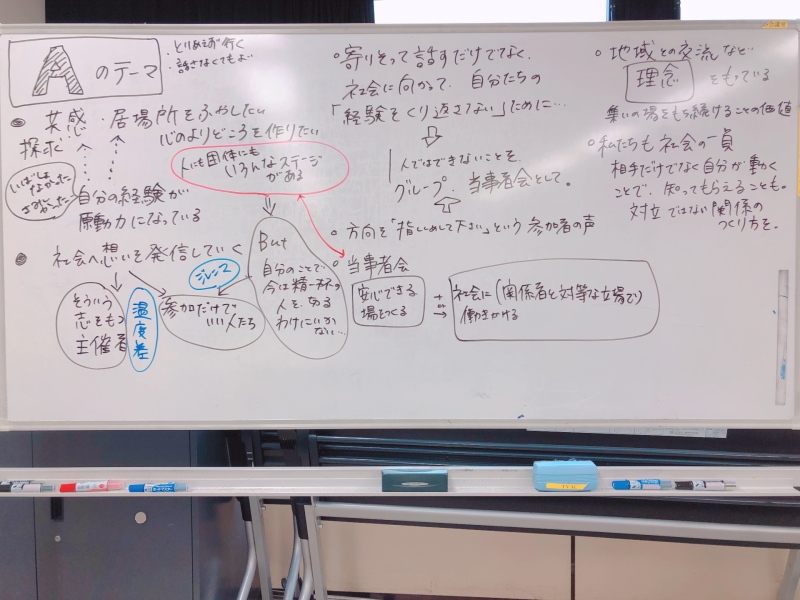 Aのテーマ
・とりあえず行く
・話さなくてもよい
● 共感・居場所をふやしたい
探求 心のよりどころを作りたい
いばしょ
なかった
さみしかった
自分の経験が
原動力になっている
人にも団体にも
いろんなステージ
がある
● 社会へ想いを発信していく
そういう
志をもつ
主催者
温度差
ジレンマ
参加だけで
いい人たち
But
自分のことで
今は精一杯の
人を、せめる
わけにいか
ない…
○寄りそって話すだけでなく、
社会に向かって、自分たちの
「経験をくり返さない」ために…
1人ではできないことを、
グループ、当事者会として。
○方向を「指ししめして下さい」という参加者の声
○当事者会
安心できる
場をつくる
+
社会に(関係者と対等な立場で)
働きかける
○地域との交流など…
理念 をもっている
集いの場をもち続けることの価値
○私たちも社会の一員
相手だけでなく自分が動く
ことで、知ってもらえることも。
対立ではない関係の
つくり方を。